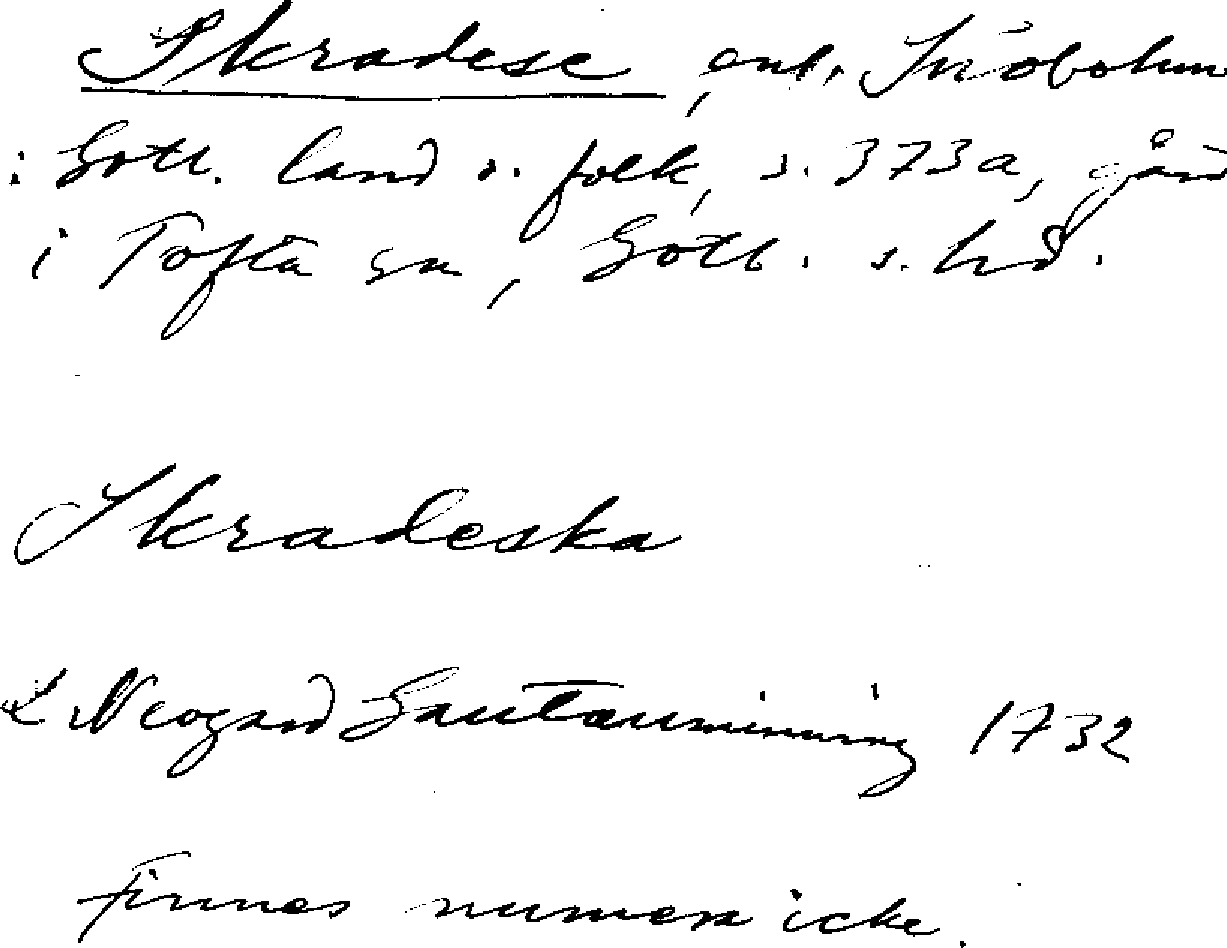 Skradese, enl. Snöbohm
i Gotl. land o. folk, s. 373a, gård
i Tofta sn, Gotl. s. hd.
Skradeska
L Neogard Gautauminning 1732
Finnes numera icke.